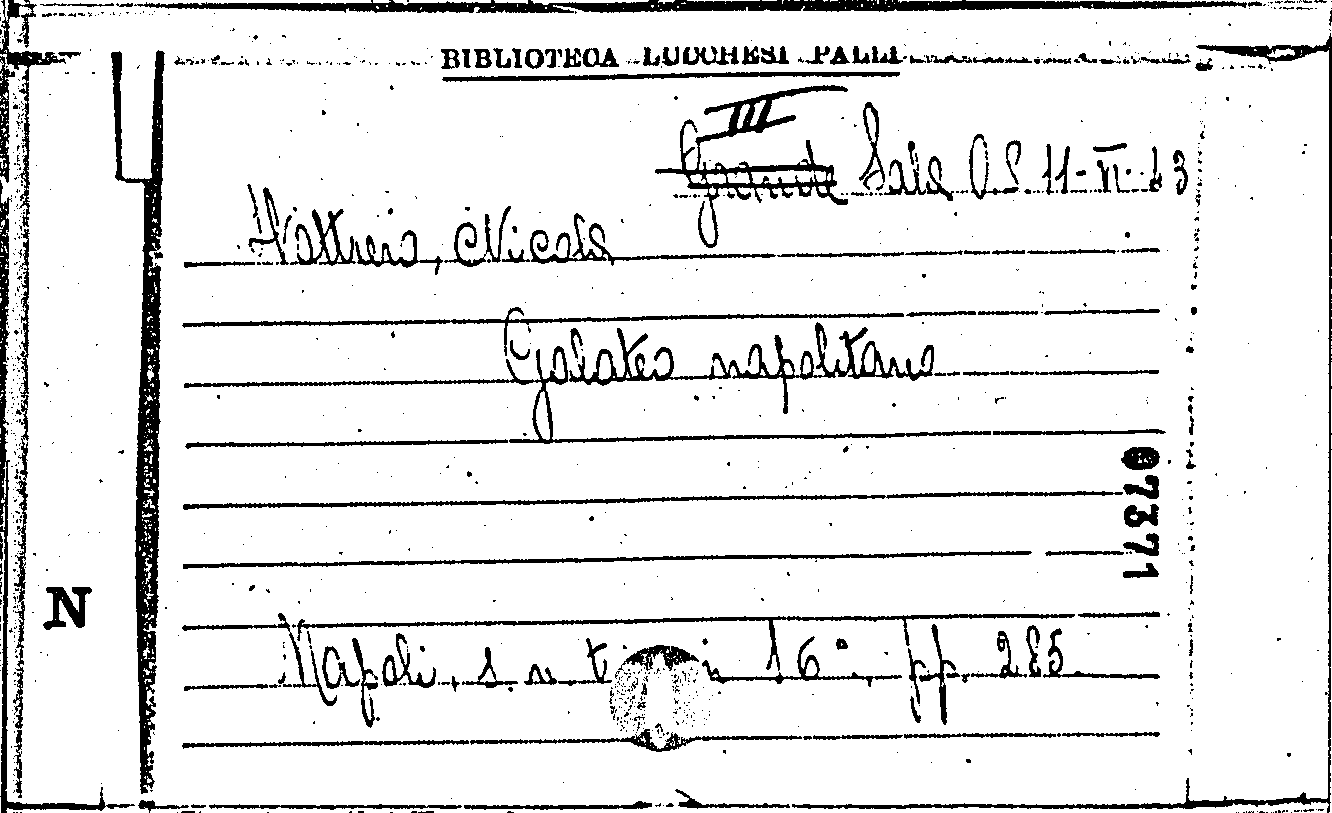 BIBLIOTECA LUCCHESI PALLI
III
Grande Sala O.S. 11-VI-23
Nottrero, Nicola
Galateo napolitano
07371
N
Napoli, s. n. t. in 16°, pp. 285